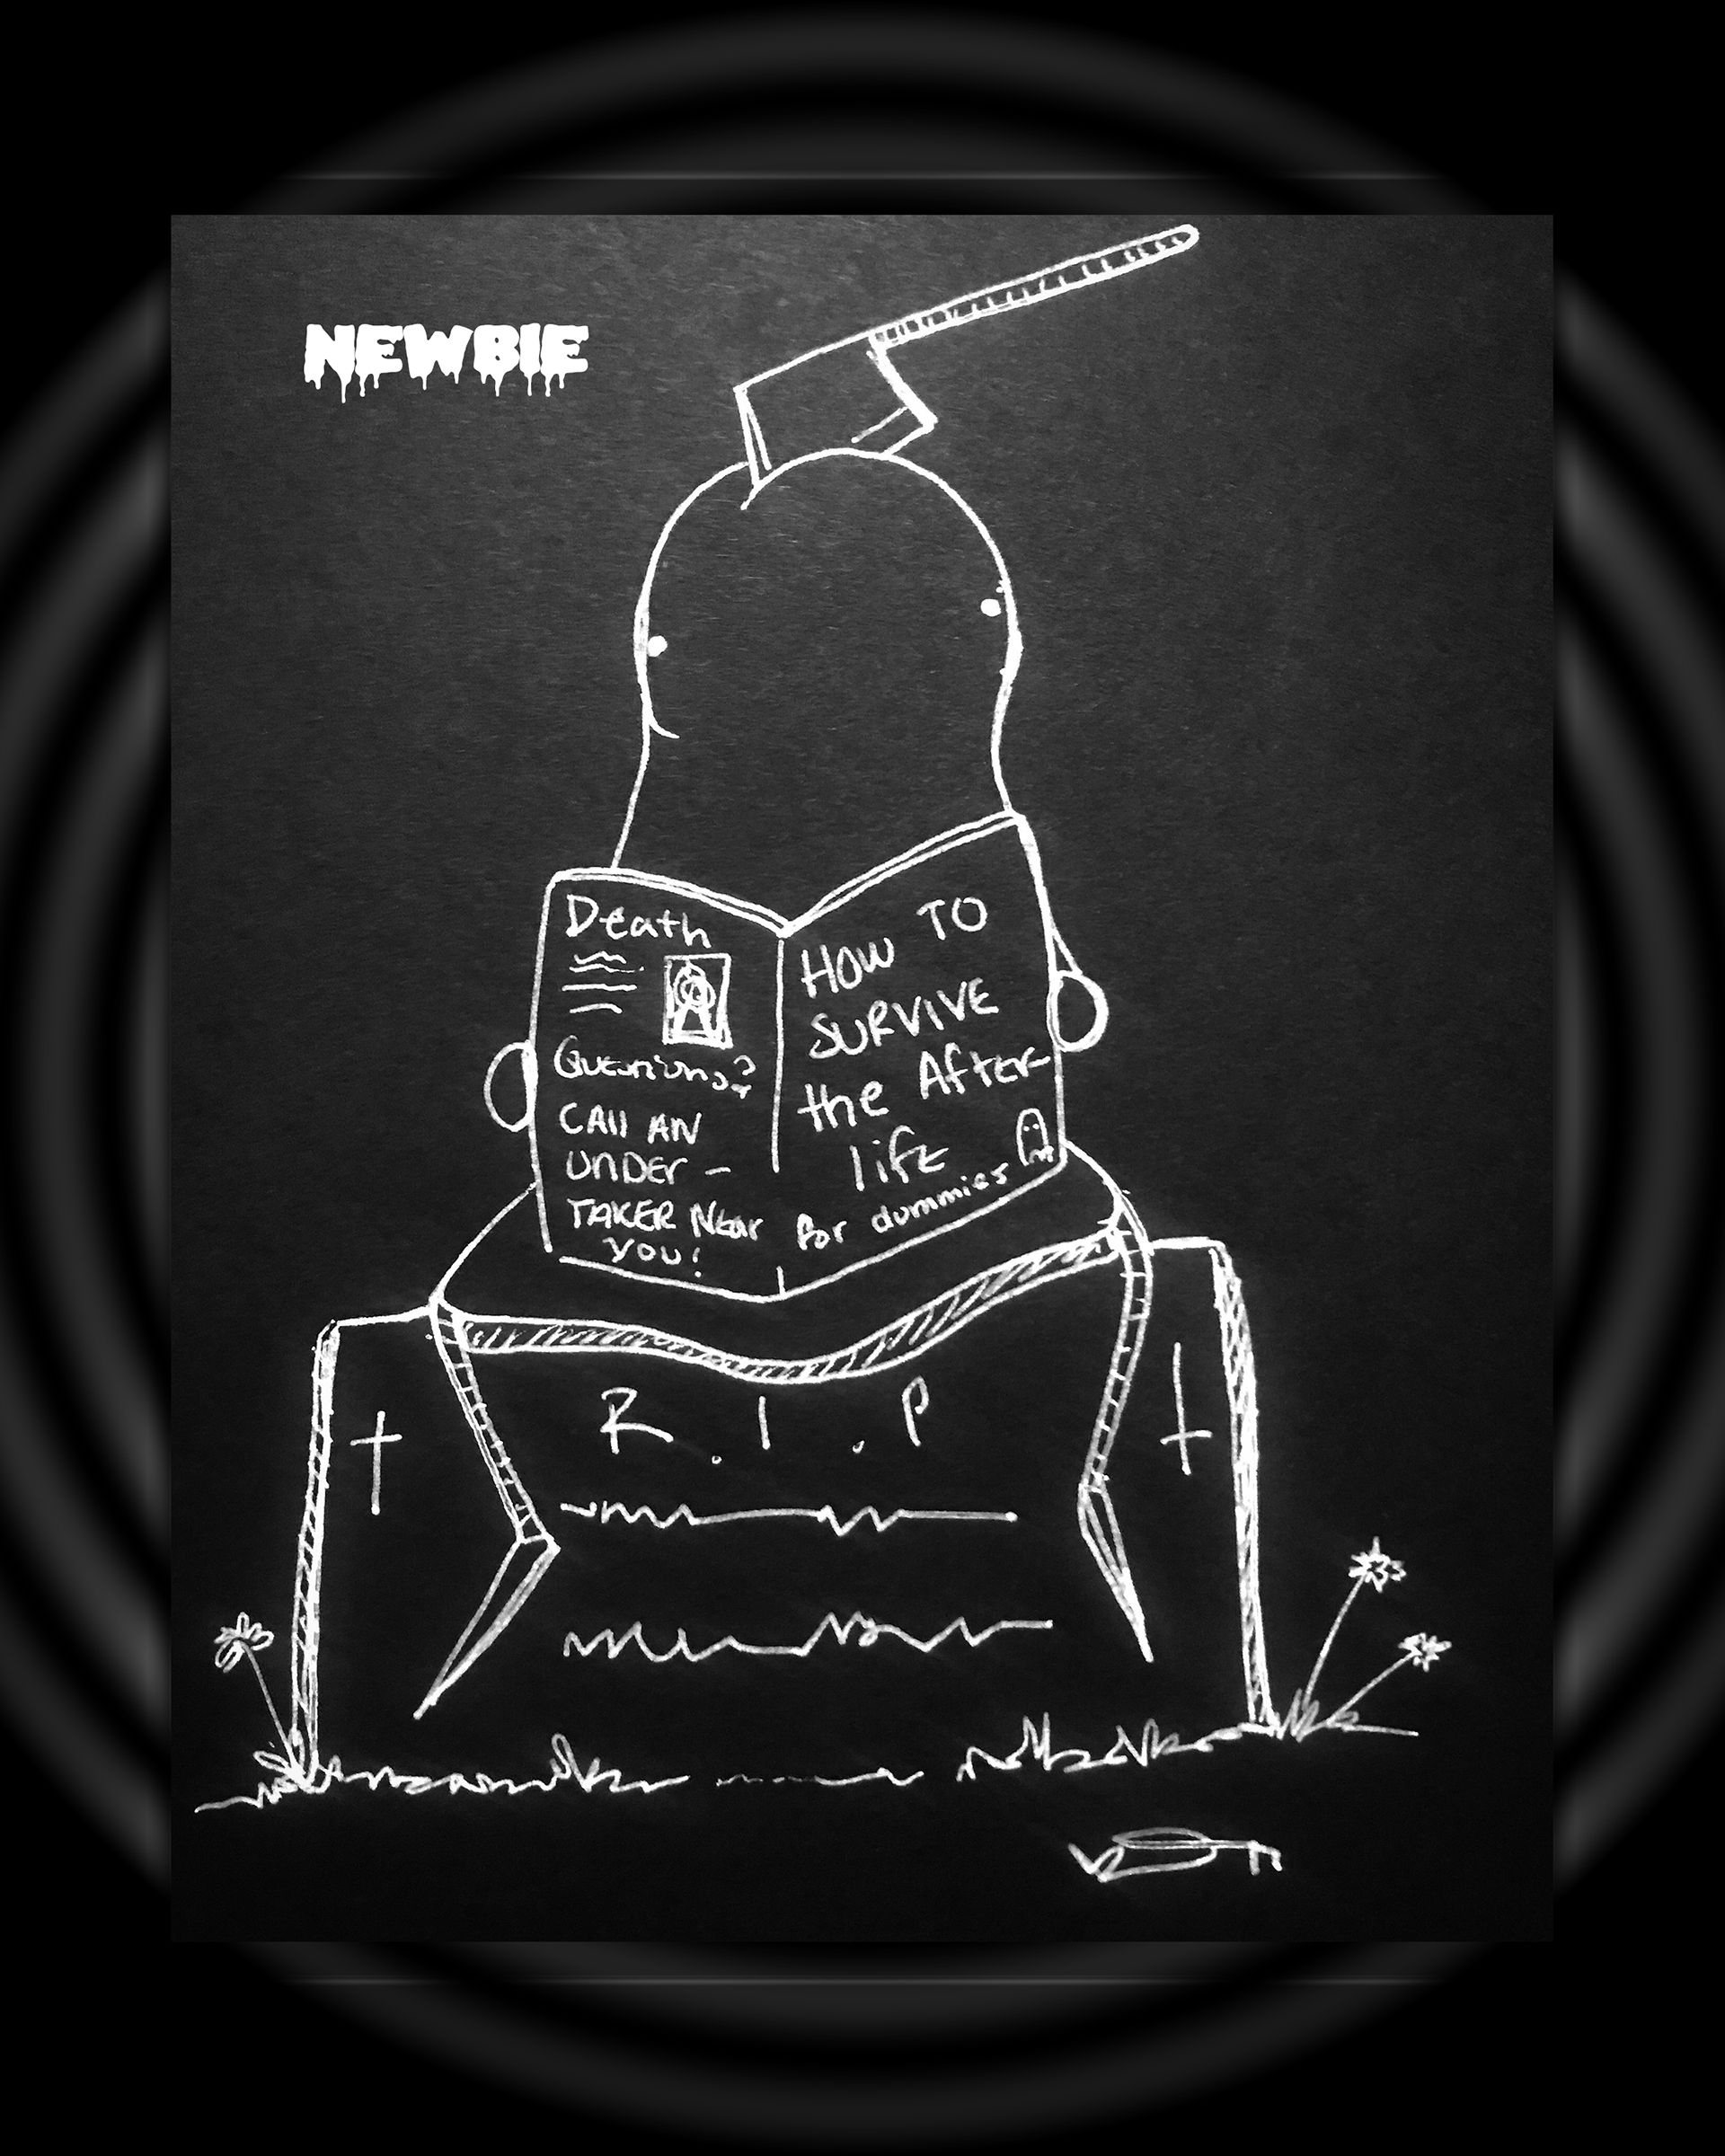 NEWBIE
Death
Questions?
CAll AN
UNDER -
TAKER Near
you!
HOW TO
SURVIVE
the After-
life
for dummies
R . I . P